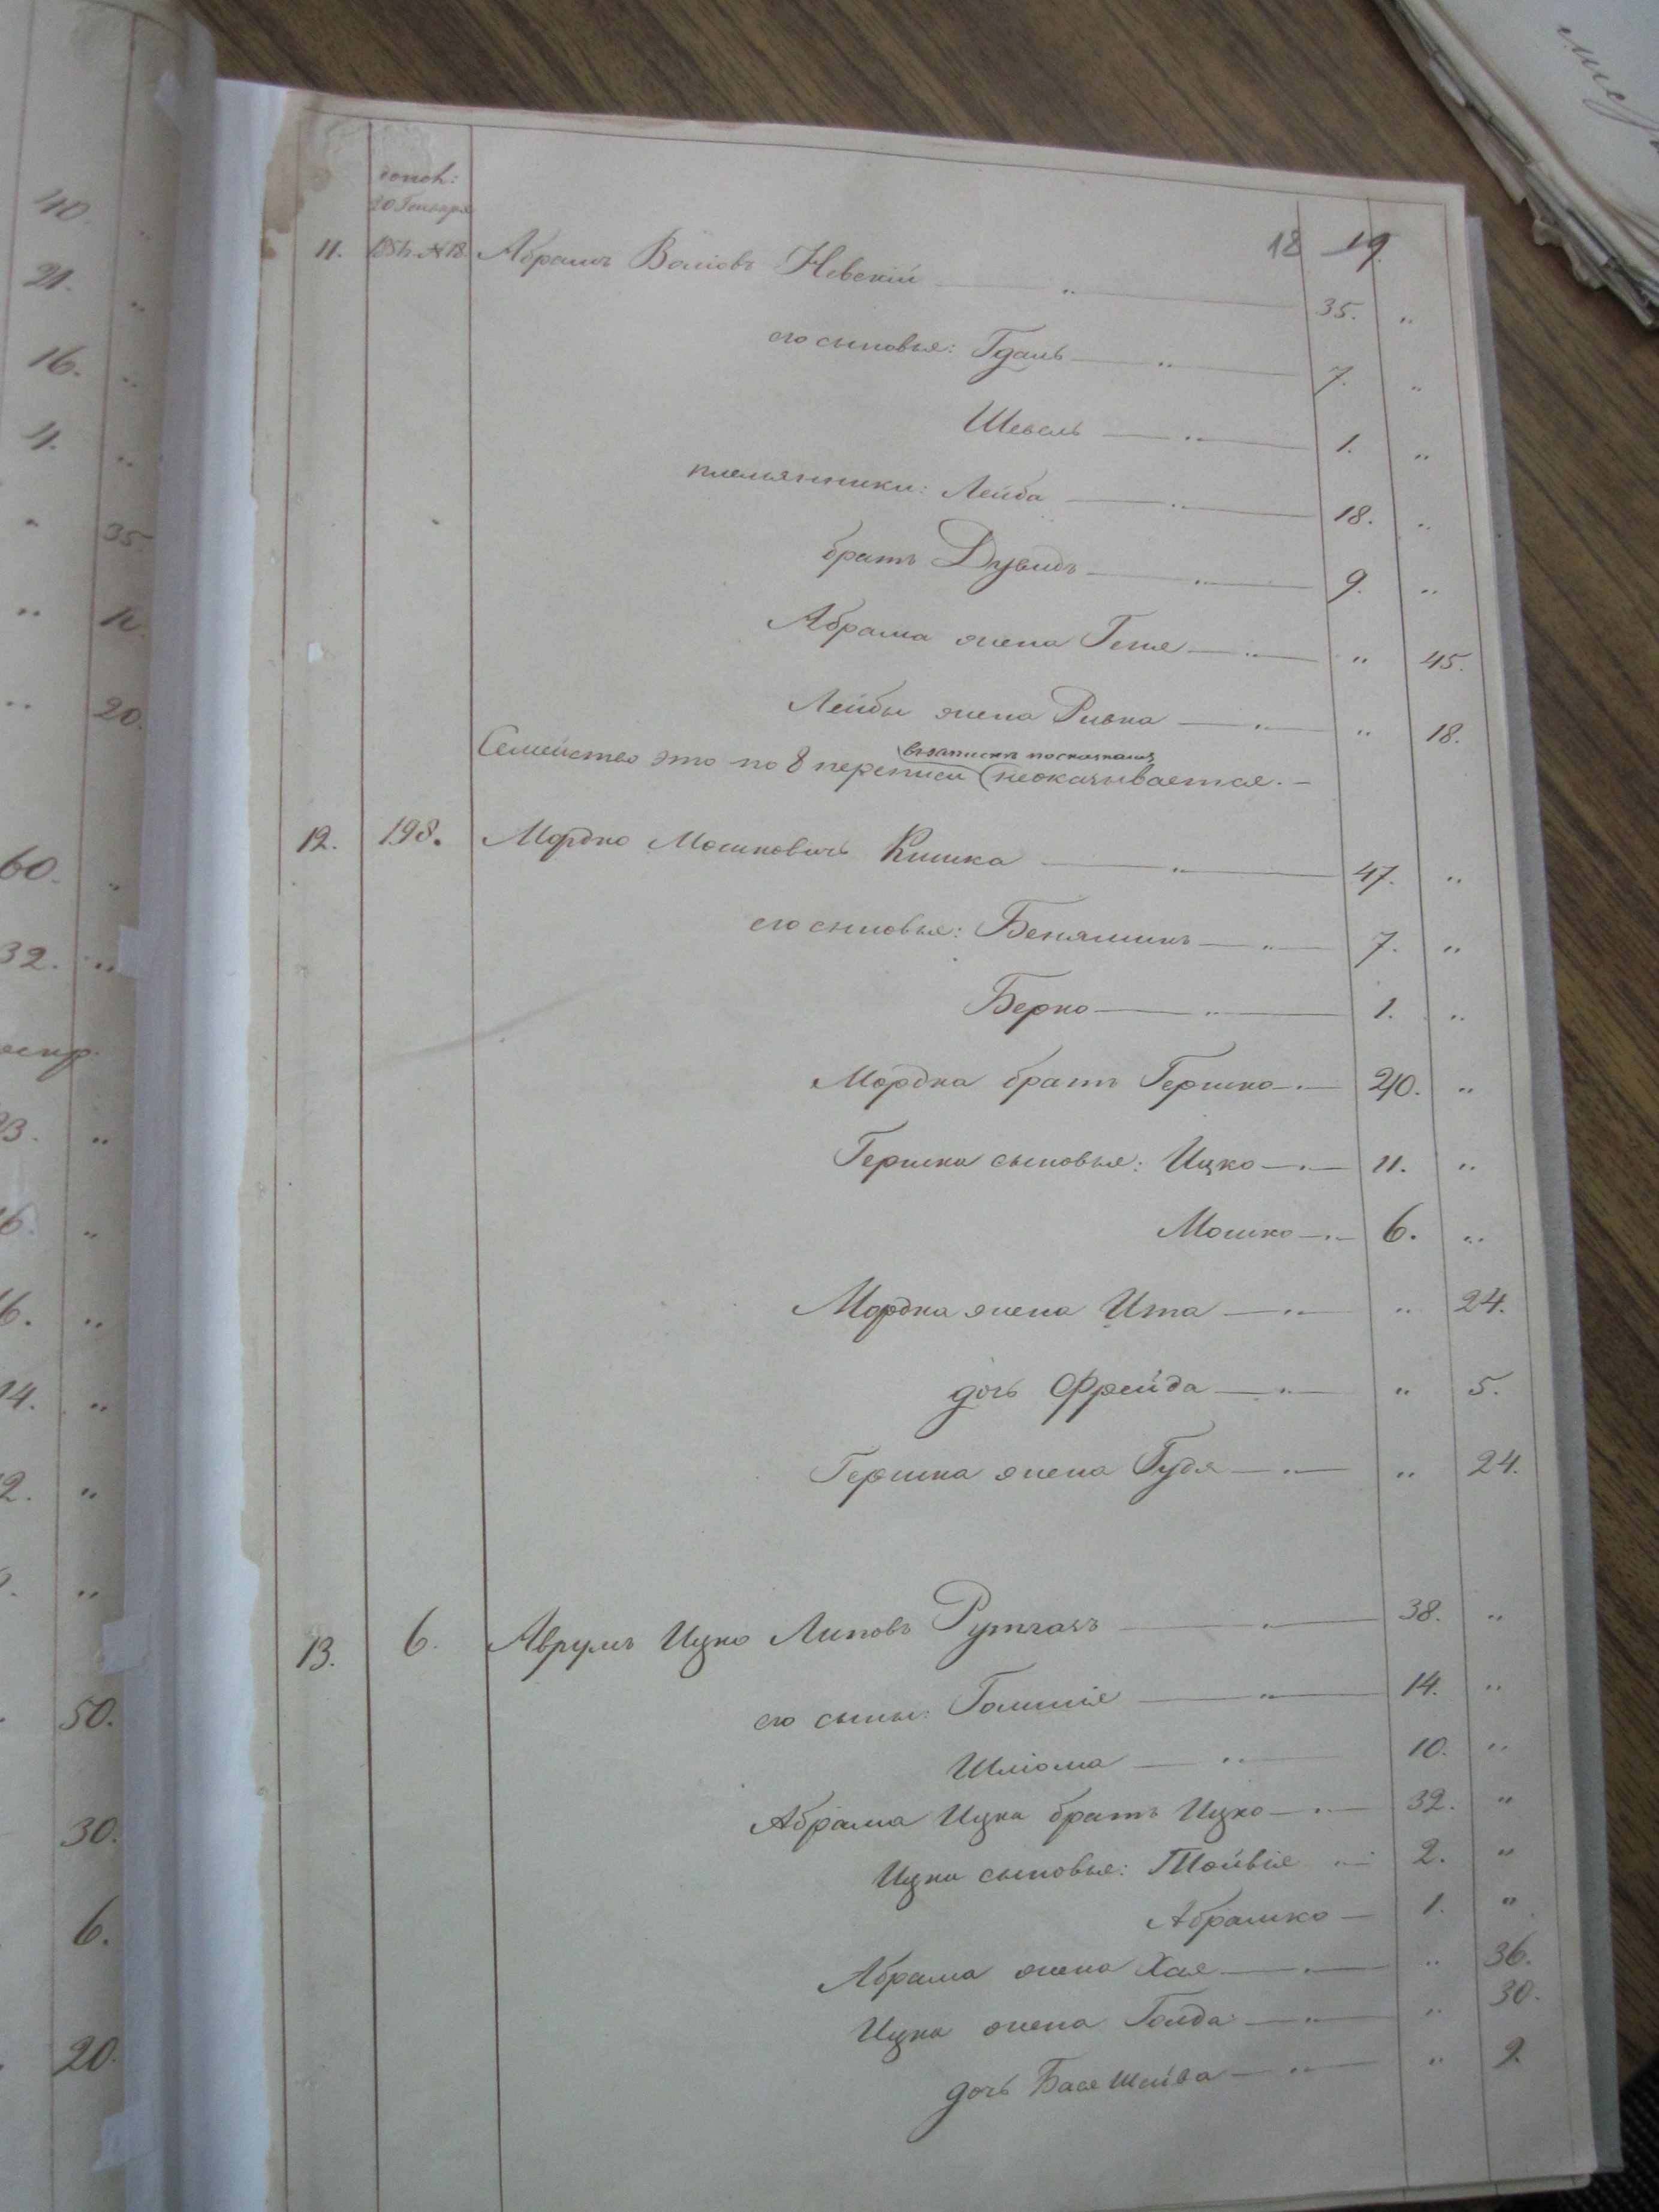 допол:
20 Генваря
18 19.
11. 1854. №18 Абрамъ Волiовъ Невскiй — „ — 35. „
его сыновья: Гдаль — „ — 7. „
Шевель — „ — 1. „
племянники: Лейба — „ — 18. „
братъ Дувидъ — „ — 9. „
Абрама жена Геня — „ — „ 45.
Лейбы жена Ривка — „ — „ 18.
Семейство это по 8 переписи неоказывается. —
12. 198. Мордко Мошковичь Кишка — „ — 47. „
его сыновья: Беняминъ — „ — 7. „
Берко — „ — 1. „
Мордка братъ Гершко — „ — 40. „
Гершка сыновья: Ицко — „ — 11. „
Мошко — „ — 6. „
Мордка жена Ита — „ — „ 24.
дочь Фрейда — „ — „ 5.
Гершка жена Гудя — „ — „ 24.
13. 6. Аврумъ Ицко Липовъ Рутгазъ — „ — 38. „
его сыны: — „ — 14. „
Шліома — „ — 10. „
Абрама Ицка братъ Ицко — „ — 32. „
Ицка сыновья: Тойвіе — „ — 2. „
Абрамко — 1. „
Абрама жена Хая — „ — „ 36.
Ицка жена Голда — „ — „ 30.
дочь Бася Шейва — „ — „ 9.
40. „
21. „
16. „
4. „
„ 35.
„ 12.
„ 20.
60. „
32. „
14. „
50.
30.
6.
20.